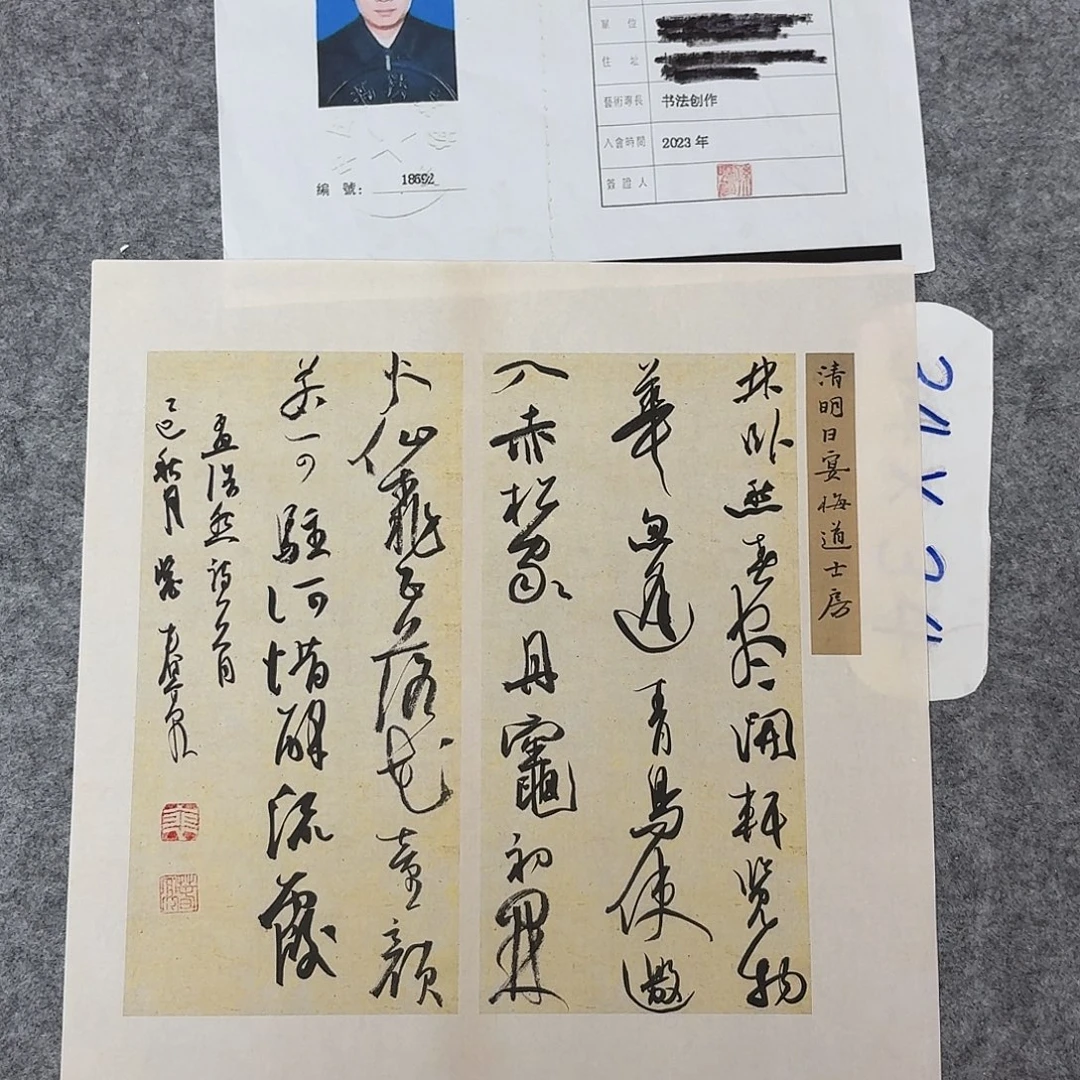 單 位
住 址
藝術專長 书法创作
入會時間 2023 年
簽證人
編 號: 18692
清明日宴梅道士房
林卧愁春尽開軒览物
華忽逢青鳥使邀
入赤松家丹竈初開
火仙桃正落花童颜
若可駐何惜醉流霞
孟浩然詩一首
乙巳秋月